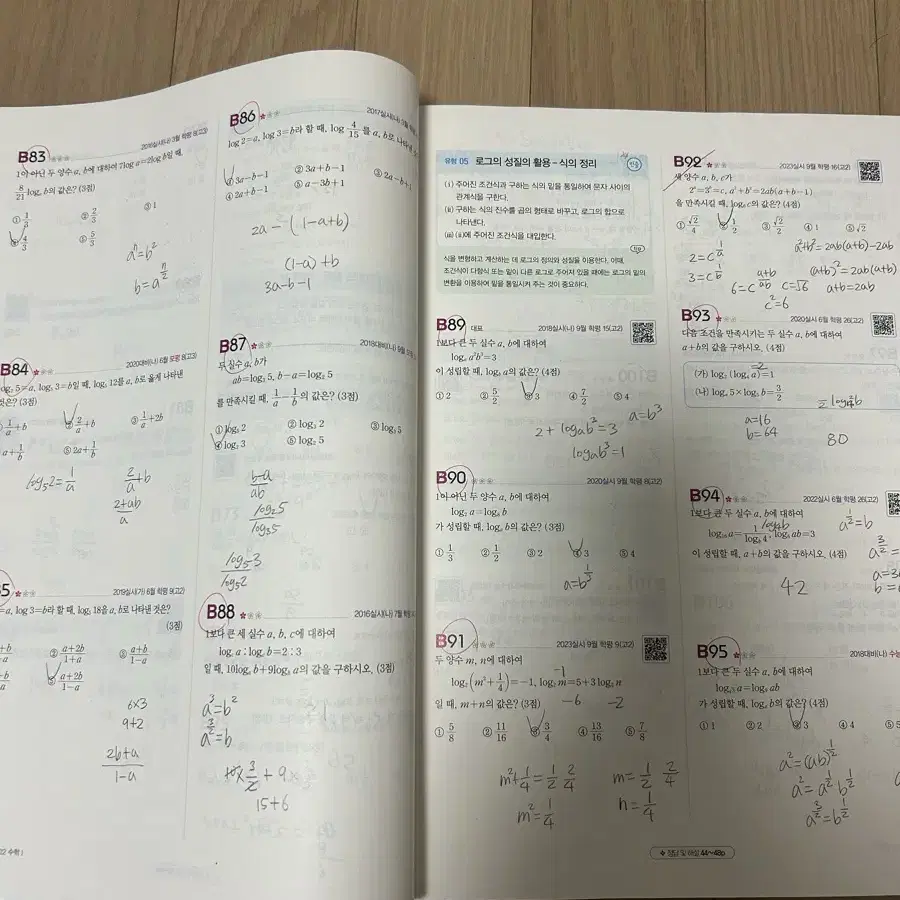 B83
2016실시(나) 3월 학평 8(고3)
1이 아닌 두 양수 a, b에 대하여 7log a=2log b일 때,
8/21 logₐ b의 값은? (3점)
① 1/3 ② 2/3 ③ 1
④ 4/3 ⑤ 5/3
b=a
B84
2020대비(나) 6월 모평 8(고3)
5=a, log₅ 3=b일 때, log₅ 12를 a, b로 옳게 나타낸
것은? (3점)
1/a+b ② 2/a+b ③ 1/a+2b
a+1/b ⑤ 2a+1/b
log₅2=1/a
2/a+b
2+ab/a
2019실시(가) 6월 학평 9(고2)
=a, log 3=b라 할 때, log₅ 18을 a, b로 나타낸 것은?
(3점)
② a+2b/1+a ③ a+b/1-a
a+2b/1-a
6×3
9+2
2b+a/1-a
B86
2017실시(나) 3월
log 2=a, log 3=b라 할 때, log 4/15를 a, b로 나타낸
① 3a-b-1 ② 3a+b-1 ③ 2a-b+1
④ 2a+b-1 ⑤ a-3b+1
2a-(1-a+b)
(1-a)+b
3a-b-1
B87
2018대비(나) 9월
두 실수 a, b가
ab=log₃ 5, b-a=log₂ 5
를 만족시킬 때, 1/a-1/b의 값은? (3점)
① log₅ 2 ② log₃ 2 ③ log₃ 5
④ log₂ 3 ⑤ log₂ 5
b-a/ab
log₂5/log₃5
log₅3/log₅2
B88
2016실시(나) 7월 학평
1보다 큰 세 실수 a, b, c에 대하여
일 때, 10logₐ b+9log_b a의 값을 구하시오. (3점)
a³=b²
a^(3/2)=b
10×3/2+9
15+6
유형 05 로그의 성질의 활용 - 식의 정리
(i) 주어진 조건식과 구하는 식의 밑을 통일하여 문자 사이의
관계식을 구한다.
(ii) 구하는 식의 진수를 곱의 형태로 바꾸고, 로그의 합으로
나타낸다.
(iii) (ii)에 주어진 조건식을 대입한다.
식을 변형하고 계산하는 데 로그의 정의와 성질을 이용한다. 이때,
조건식이 다항식 또는 밑이 다른 로그로 주어져 있을 때에는 로그의 밑의
변환을 이용하여 밑을 통일시켜 주는 것이 중요하다.
B89 대표
2018실시(나) 9월 학평 15(고2)
1보다 큰 두 실수 a, b에 대하여
이 성립할 때, 의 값은? (4점)
① 2 ② 5/2 ③ 3 ④ 7/2 ⑤ 4
a=b³
B90
2020실시 9월 학평 8(고2)
1이 아닌 두 양수 a, b에 대하여
log₂ a=log₈ b
가 성립할 때, logₐ b의 값은? (3점)
① 1/3 ② 1/2 ③ 2 ④ 3 ⑤ 4
a=b^(1/3)
B91
2023실시 9월 학평 9(고2)
두 양수 m, n에 대하여
log₂(m²+1/4)=-1, log₂ m=5+3log₂ n
-1
일 때, m+n의 값은? (3점)
-6 -2
① 5/8 ② 11/16 ③ 3/4 ④ 13/16 ⑤ 7/8
m²+1/4=1/2 2/4
m²=1/4
m=1/2 2/4
n=1/4
B92
2023실시 9월 학평 16(고2)
세 양수 a, b, c가
2ᵃ=3ᵇ=c, a²+b²=2ab(a+b-1)
을 만족시킬 때, log₆ c의 값은? (4점)
① √2/4 ② 1/2 ③ √2/2 ④ 1 ⑤ √2
a²+b²=2ab(a+b)-2ab
2=c^(1/a)
3=c^(1/b)
(a+b)²=2ab(a+b)
6=c^(a+b/ab) c=√6 a+b=2ab
c²=6
B93
2020실시 6월 학평 26(고2)
다음 조건을 만족시키는 두 실수 a, b에 대하여
a+b의 값을 구하시오. (4점)
(가) log₂(log₄ a)=1
(나) logₐ 5×log₅ b=3/2
a=16
b=64
80
B94
2022실시 6월 학평 26(고2)
1보다 큰 두 실수 a, b에 대하여
이 성립할 때, a+b의 값을 구하시오. (4점)
a^(1/2)=b
42
B95
2018대비(나) 수능
1보다 큰 두 실수 a, b에 대하여
가 성립할 때, logₐ b의 값은? (4점)
① 1 ② 2 ③ 3 ④ 4 ⑤ 5
a²=(ab)^(1/2)
a²=a^(1/2) b^(1/2)
a^(3/2)=b^(1/2)
정답 및 해설 44~48p